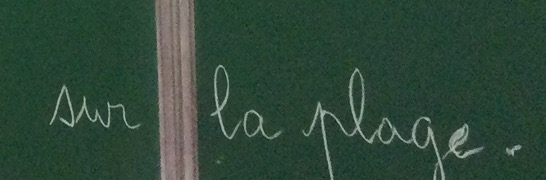 sur la plage.